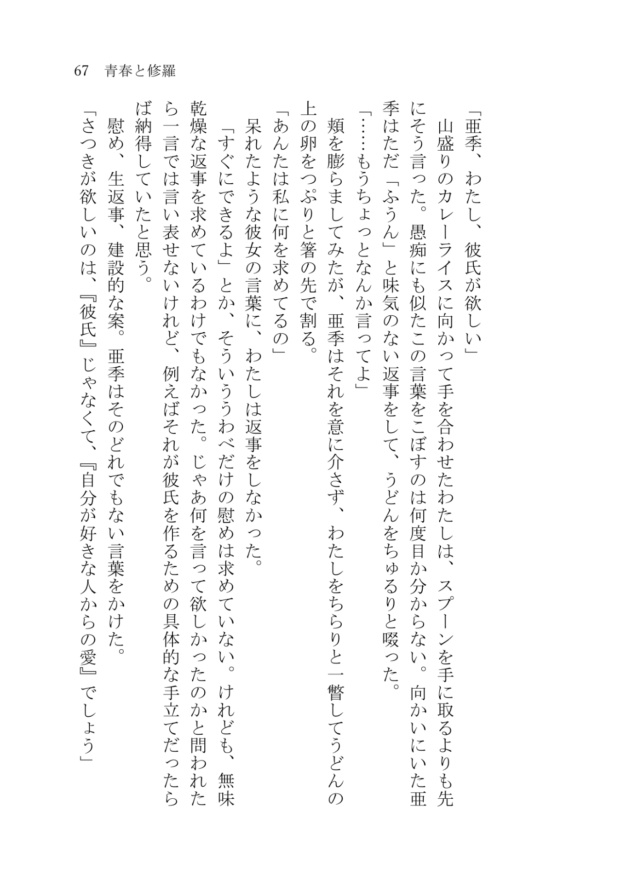 67　青春と修羅
「亜季、わたし、彼氏が欲しい」
　山盛りのカレーライスに向かって手を合わせたわたしは、スプーンを手に取るよりも先
にそう言った。愚痴にも似たこの言葉をこぼすのは何度目か分からない。向かいにいた亜
季はただ「ふうん」と味気のない返事をして、うどんをちゅるりと啜った。
「……もうちょっとなんか言ってよ」
　頬を膨らましてみたが、亜季はそれを意に介さず、わたしをちらりと一瞥してうどんの
上の卵をつぷりと箸の先で割る。
「あんたは私に何を求めてるの」
　呆れたような彼女の言葉に、わたしは返事をしなかった。
　「すぐにできるよ」とか、そういううわべだけの慰めは求めていない。けれども、無味
乾燥な返事を求めているわけでもなかった。じゃあ何を言って欲しかったのかと問われた
ら一言では言い表せないけれど、例えばそれが彼氏を作るための具体的な手立てだったら
ば納得していたと思う。
　慰め、生返事、建設的な案。亜季はそのどれでもない言葉をかけた。
「さつきが欲しいのは、『彼氏』じゃなくて、『自分が好きな人からの愛』でしょう」